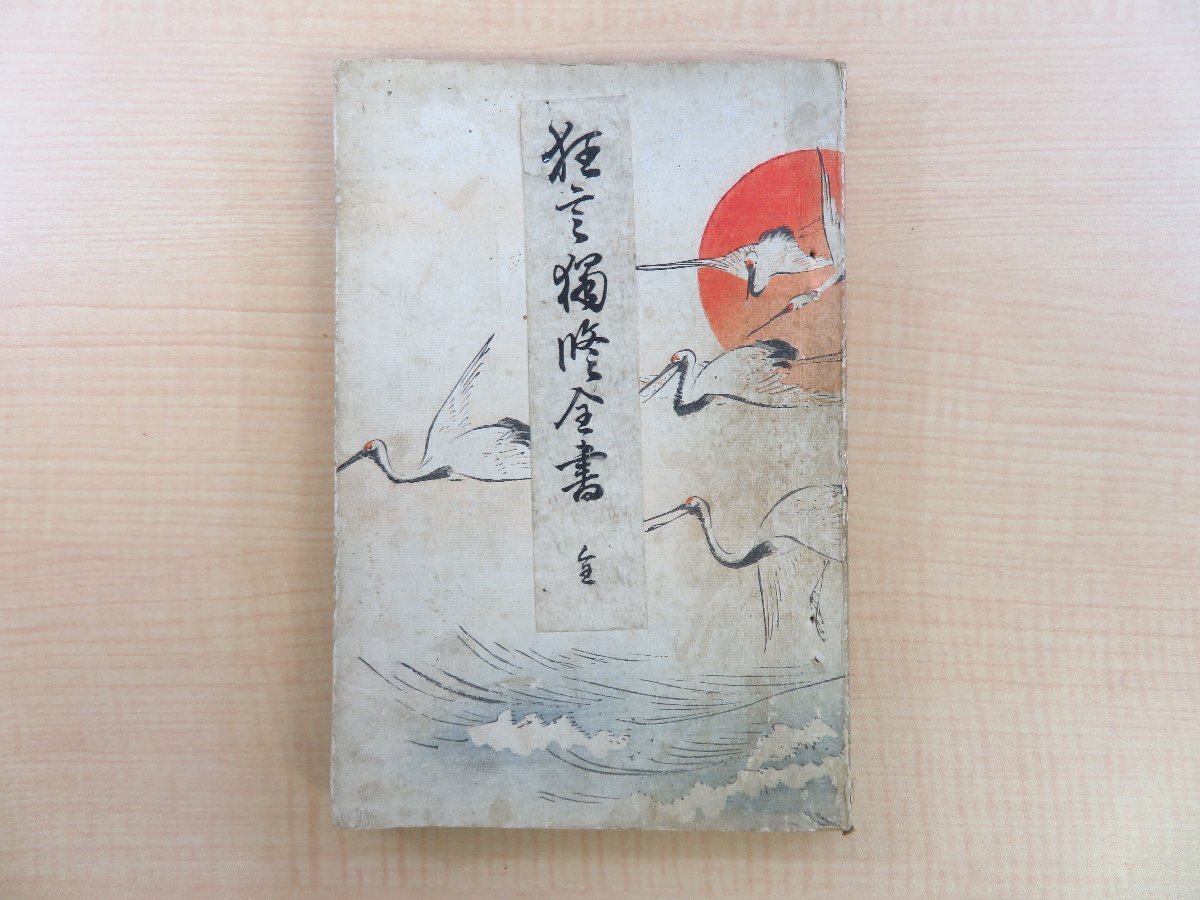 狂言獨修全書
全